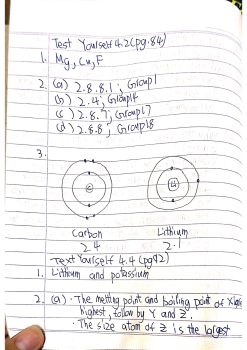 Test Yourself 4.2 (pg.84)
1. Mg, Cu, F
2. (a) 2.8.8.1 ; Group 1
(b) 2.4 ; Group 14
(c) 2.8.7 ; Group 17
(d) 2.8.8 ; Group 18
3.
C
Li
Carbon
Lithium
2.4
2.1
Text Yourself 4.4 (pg92)
1. Lithium and potassium
2. (a) · The melting point and boiling point of X is
highest, follow by Y and Z.
· The size atom of Z is the largest